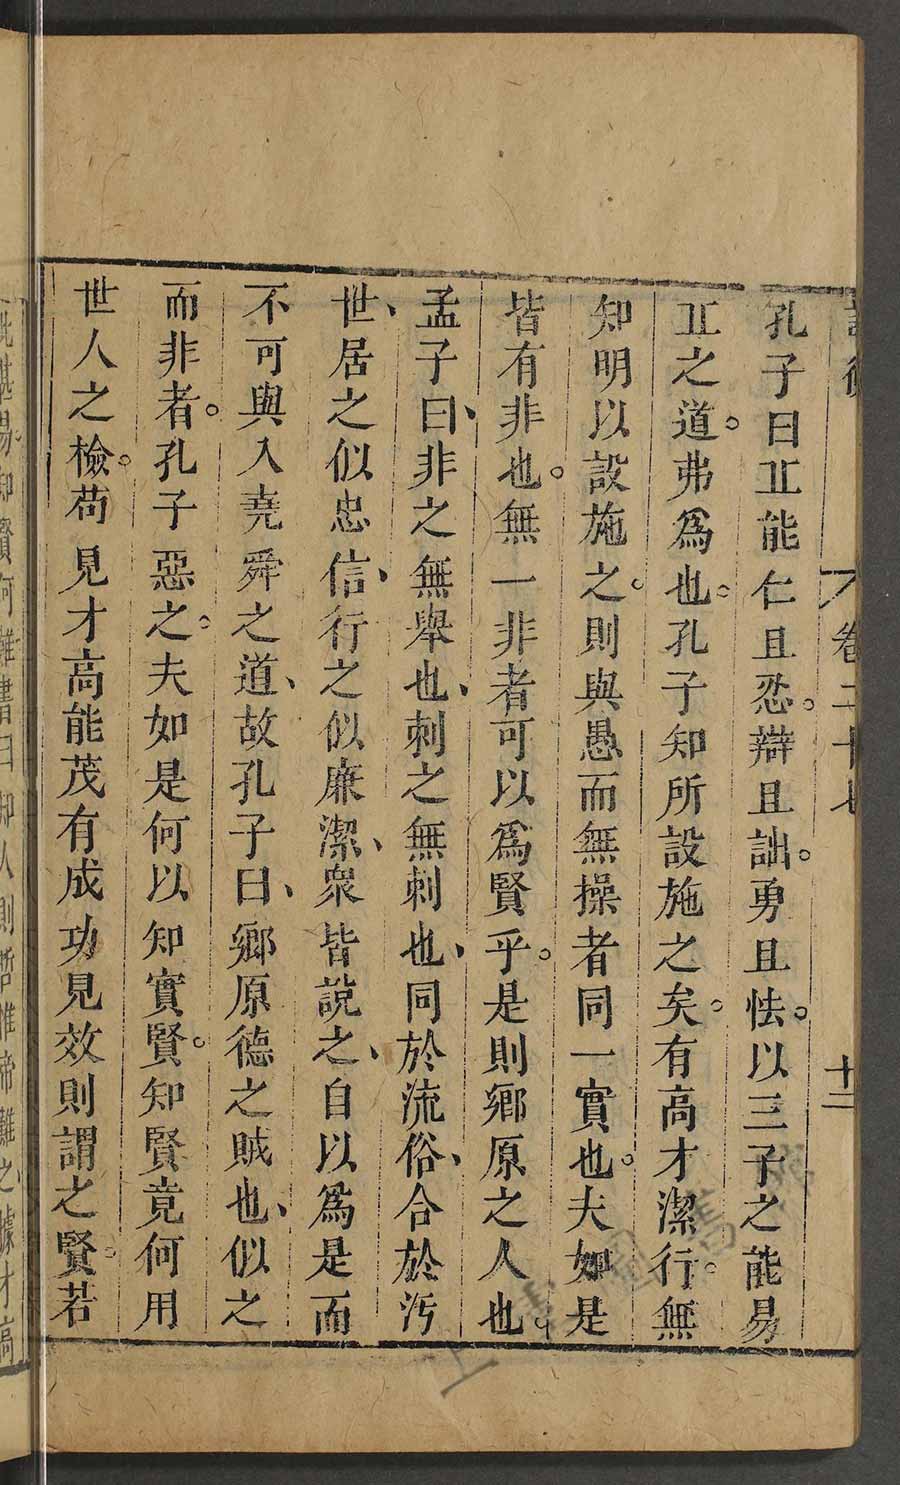 卷二十七
十二
孔子曰丘能仁且忍。辯且詘。勇且怯。以三子之能易
丘之道。弗爲也。孔子知所設施之矣。有高才潔行。無
知明以設施之。則與愚而無操者同一實也。夫如是
皆有非也。無一非者可以爲賢乎。是則鄉原之人也。
孟子曰、非之無舉也、刺之無刺也、同於流俗、合於汚
世、居之似忠信、行之似廉潔、衆皆說之、自以爲是而
不可與入堯舜之道、故孔子曰、鄉原德之賊也、似之
而非者。孔子惡之。夫如是何以知實賢。知賢竟何用
世人之檢。苟見才高能茂有成功見效則謂之賢。若